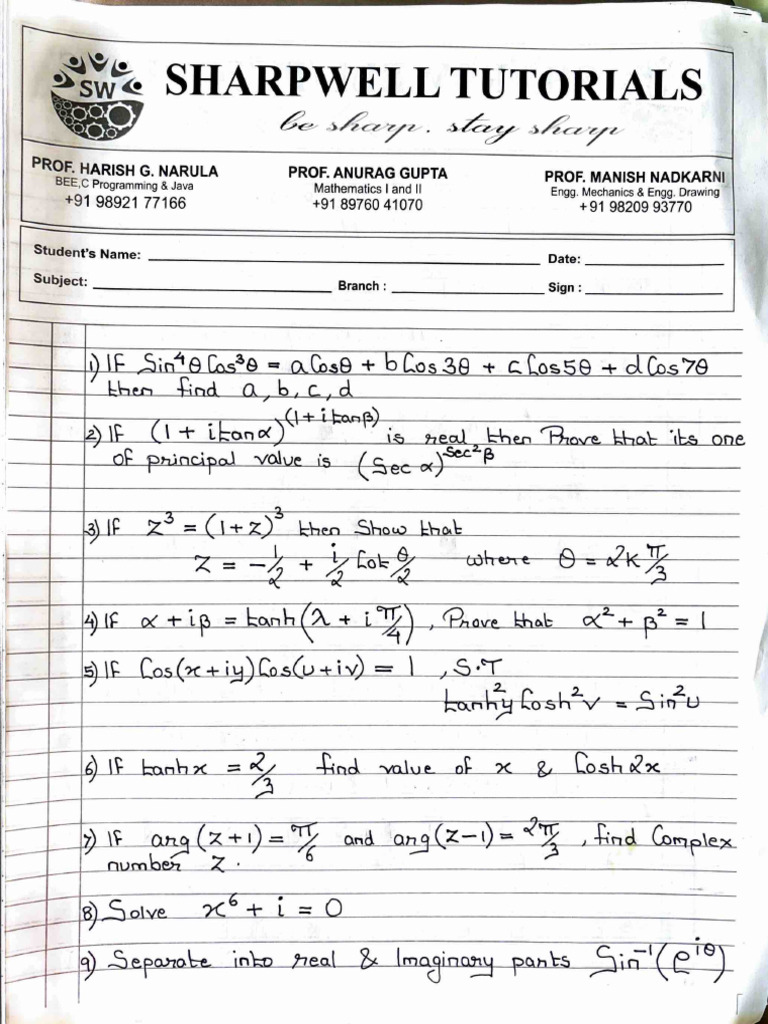 SW
SHARPWELL TUTORIALS
be sharp. stay sharp
PROF. HARISH G. NARULA
BEE,C Programming & Java
+91 98921 77166
PROF. ANURAG GUPTA
Mathematics I and II
+91 89760 41070
PROF. MANISH NADKARNI
Engg. Mechanics & Engg. Drawing
+91 98209 93770
Student's Name: Date:
Subject: Branch : Sign :
1) If Sin⁴θ Cos³θ = a Cosθ + b Cos3θ + c Cos5θ + d Cos7θ
then find a, b, c, d
2) If (1 + i tanα)^(1 + i tanβ) is real then Prove that its one
of principal value is (Sec α)^Sec²β
3) If z³ = (1+z)³ then Show that
z = -1/2 + i/2 Cot θ/2 where θ = 2K π/3
4) If α + iβ = tanh(λ + i π/4), Prove that α² + β² = 1
5) If Cos(x+iy) Cos(u+iv) = 1, S.T
tanh²y Cosh²v = Sin²u
6) If tanhx = 2/3 find value of x & Cosh2x
7) If arg(z+1) = π/6 and arg(z-1) = 2π/3, find Complex
number z.
8) Solve x⁶ + i = 0
9) Separate into real & Imaginary parts Sin⁻¹(e^iθ)